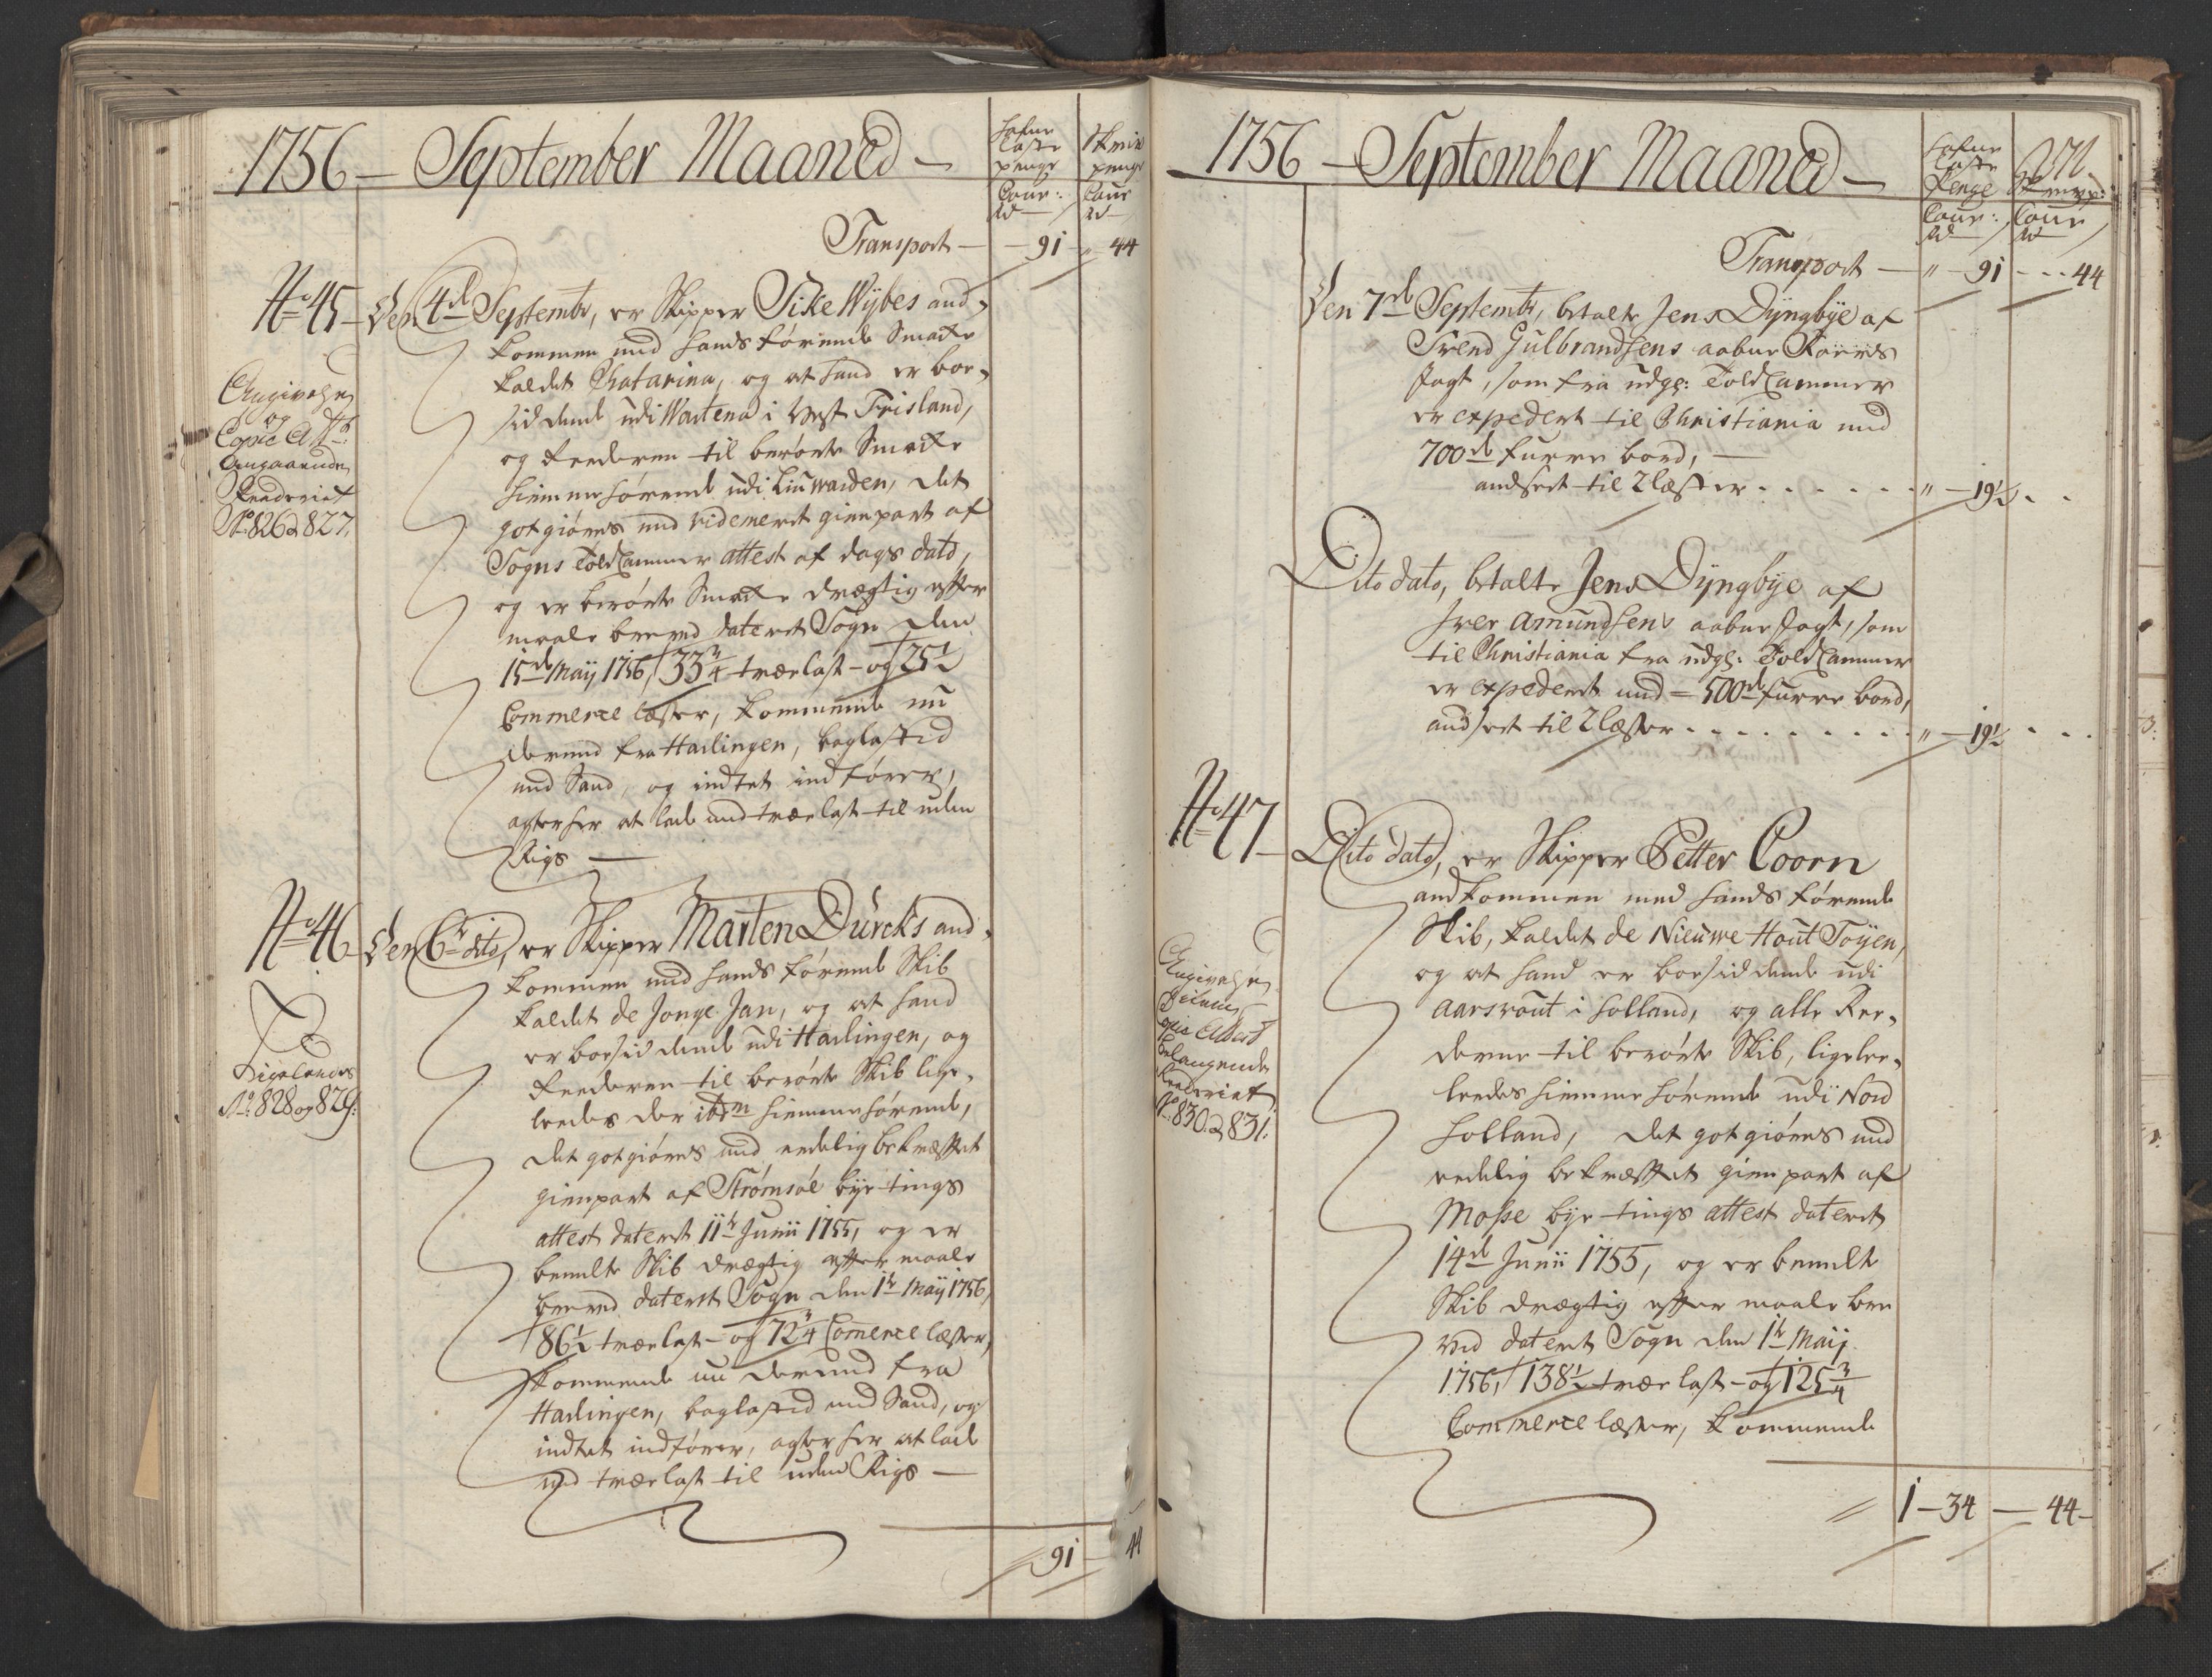 1756 — September Maaned —
Lastepenge
Cour:
Skriv penge
Cour
Transport — — 91 — „ 44
No 45 — Den 4de Septembr, er Skipper Sike Wÿbes and,
kommen med hands førende Smakke
kaldet Chatarina, og at hand er boe,
siddende udi Wartena i West Frisland,
og Reederen til berørte Smakke
hiemmehørende udi Liuwarden, det
gotgiøres med videmeret gienpart af
Sogns Told Cammer attest af dags dato,
og er berørte Smakke drægtig efter
maale breved dateret Sogn den
15de Maÿ 1756, 33¾ trælast — og 25½
Commerce læster, kommende nu
derned fra Harlingen, baglasted
med Sand, og indtet indfører,
agter her at lade med trælast til uden
Rigs —
Angivelsen
og
Copie Att:
Angaaende
Rederiet
No 826 & 827.
No 46 Den 6te dito, er Skipper Marten Dürcks and,
kommen med hands førende Skib
kaldet de Jonge Jan, og at hand
er boesiddende udi Harlingen, og
Reederen til berørte Skib lige,
leedes der ibdm hiemmehørende,
det gotgiøres med redelig bekræftet
gienpart af Strømsøe bÿe tings
attest dateret 11te Junii 1755, og er
bemelte Skib drægtig efter maale
breved dateret Sogn den 1te Maÿ 1756,
86½ trælast — og 72¾ Comerce læster,
kommende nu derned fra
Harlingen, baglasted med Sand, og
indtet indfører, agter her at lade
med trælast til uden Rigs —
Ligeledes
No 828 og 829.
91 — 44
1756 — September Maaned —
Laste
Penge
Cour:
Cour
Transport — „ — 91 - - - 44
Den 7de Septembr, betalte Jens Dÿngbÿe af
Svend Gulbrandsens aabne Foerings
Jagt, som fra udgl: Told Cammer
er expedert til Christiania med
700de furre bord, —
andsert til 2 læster - - - - - - „ — 19½ - -
Dito dato, betalte Jens Dÿngbÿe af
Iver Amundsens aabne Jagt, som
til Christiania fra udgl: Told Cammer
er expederet med — 500de furre bord,
andsert til 2 læster - - - - - - - - - „ — 19½ - - -
No 47 — Dito dato, er Skipper Petter Coorn
andkommen med hands førende
Skib, kaldet de Nieuwe Hout Toÿen,
og at hand er boesiddende udi
Aarswout i Holland, og alle Ree,
derne til berørte Skib, ligelee,
leedes hiemmehørende udi Nord
Holland, det gotgiøres med
redelig bekræftet gienpart af
Mosse bÿe tings attest dateret
14de Junii 1755, og er bemelte
Skib drægtig efter maale bre
ved dateret Sogn den 1te Maij
1756, 138½ trælast — og 125¾
Commerce læster, kommende
Angivelsen
Copie Attest
belangende
Rederiet
No 830 & 831.
1 — 34 — 44 —